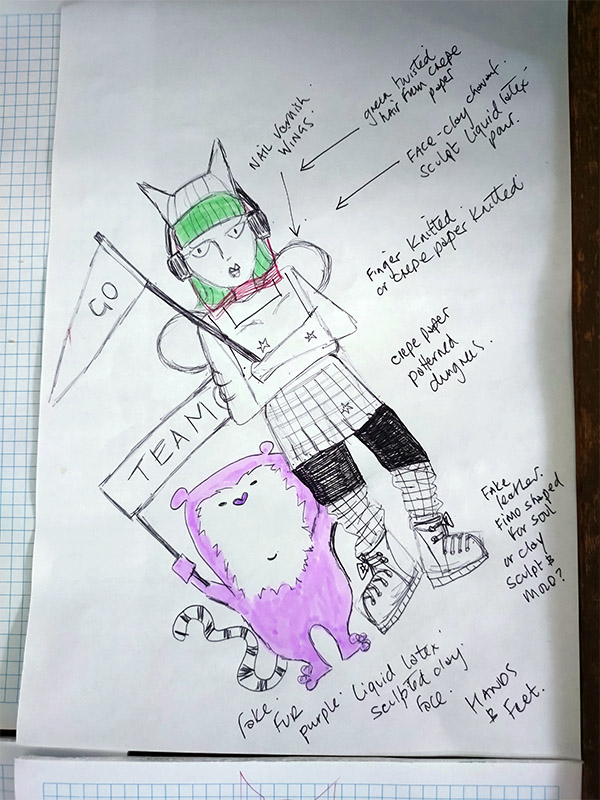 NAIL VARNISH
WINGS.
green twisted
hair from crepe
paper
FACE-Clay chavant.
sculpt liquid latex
pour.
Finger knitted.
or crepe paper knitted
crepe paper
patterned
dungrees.
GO
TEAM
Fake
leather.
Fimo shaped
for soul
or clay
sculpt &
mold?
Fake.
Fur
purple. Liquid latex
sculpted clay.
face.
HANDS
& Feet.